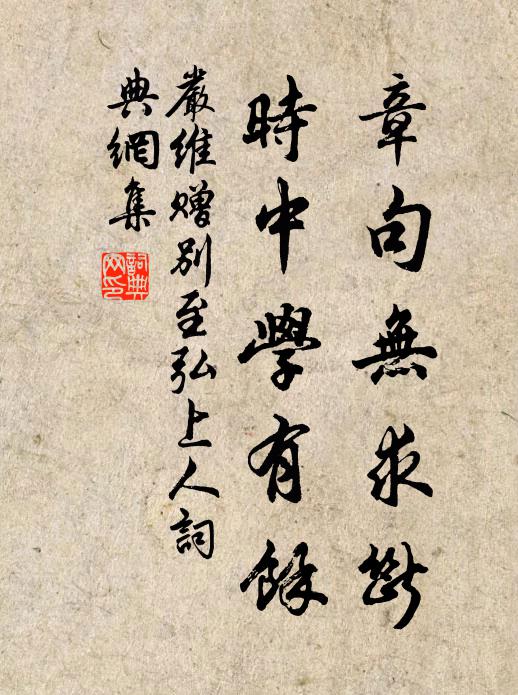 章句無求斷
時中學有餘
嚴維贈別至弘上人詞
典網集
詞典網印